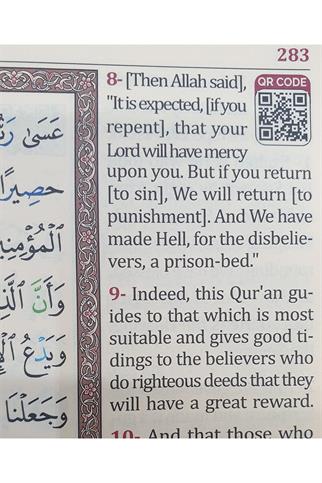 283
QR CODE
8- [Then Allah said],
"It is expected, [if you
repent], that your
Lord will have mercy
upon you. But if you return
[to sin], We will return [to
punishment]. And We have
made Hell, for the disbelie-
vers, a prison-bed."
9- Indeed, this Qur'an gu-
ides to that which is most
suitable and gives good ti-
dings to the believers who
do righteous deeds that they
will have a great reward.
10- And that those who
عَسَىٰ
حَصِيرًا
وَأَنَّ
وَيَدْعُ
وَجَعَلْنَا